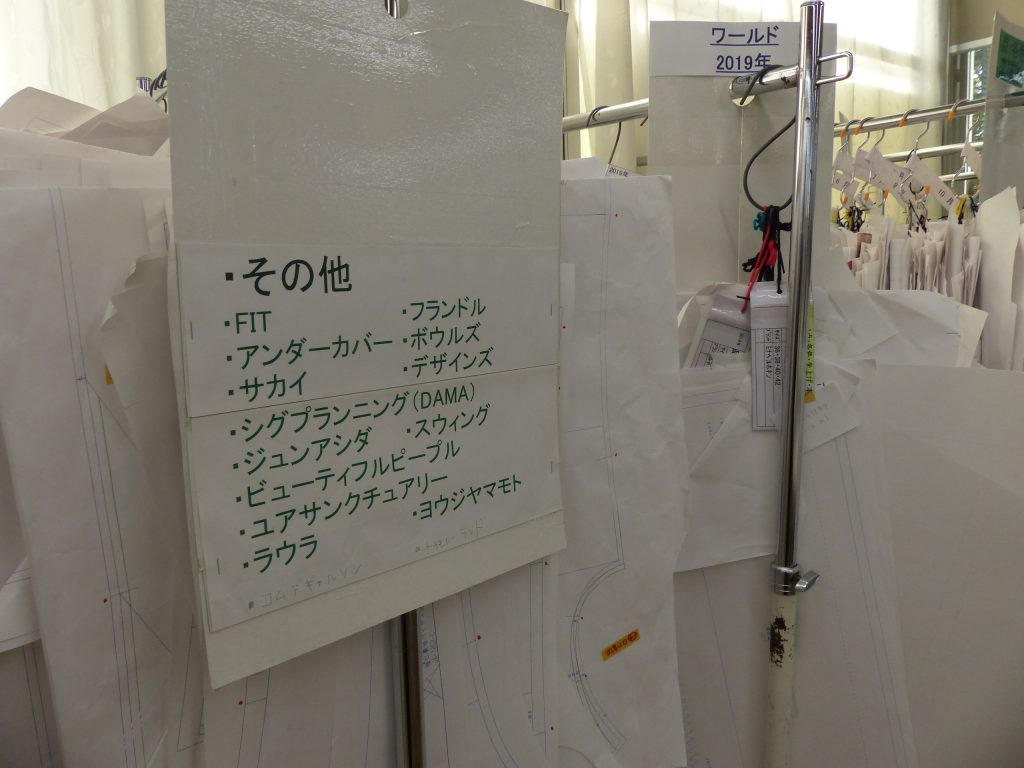 ・その他
・FIT ・フランドル
・アンダーカバー ・ボウルズ
・サカイ ・デザインズ
・シグプランニング(DAMA)
・ジュンアシダ ・スウィング
・ビューティフルピープル
・ユアサンクチュアリー
・ラウラ ・ヨウジヤマモト
・コムデギャルソン
ワールド
2019年
2019年
36・38・40・42